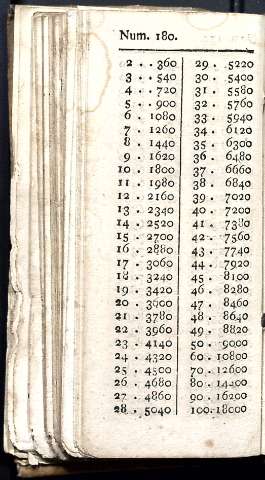 Num. 180.
2 . . 360
3 . . 540
4 . . 720
5 . . 900
6 . 1080
7 . 1260
8 . 1440
9 . 1620
10 . 1800
11 . 1980
12 . 2160
13 . 2340
14 . 2520
15 . 2700
16 . 2880
17 . 3060
18 . 3240
19 . 3420
20 . 3600
21 . 3780
22 . 3960
23 . 4140
24 . 4320
25 . 4500
26 . 4680
27 . 4860
28 . 5040
29 . 5220
30 . 5400
31 . 5580
32 . 5760
33 . 5940
34 . 6120
35 . 6300
36 . 6480
37 . 6660
38 . 6840
39 . 7020
40 . 7200
41 . 7380
42 . 7560
43 . 7740
44 . 7920
45 . 8100
46 . 8280
47 . 8460
48 . 8640
49 . 8820
50 . 9000
60 . 10800
70 . 12600
80 . 14400
90 . 16200
100. 18000